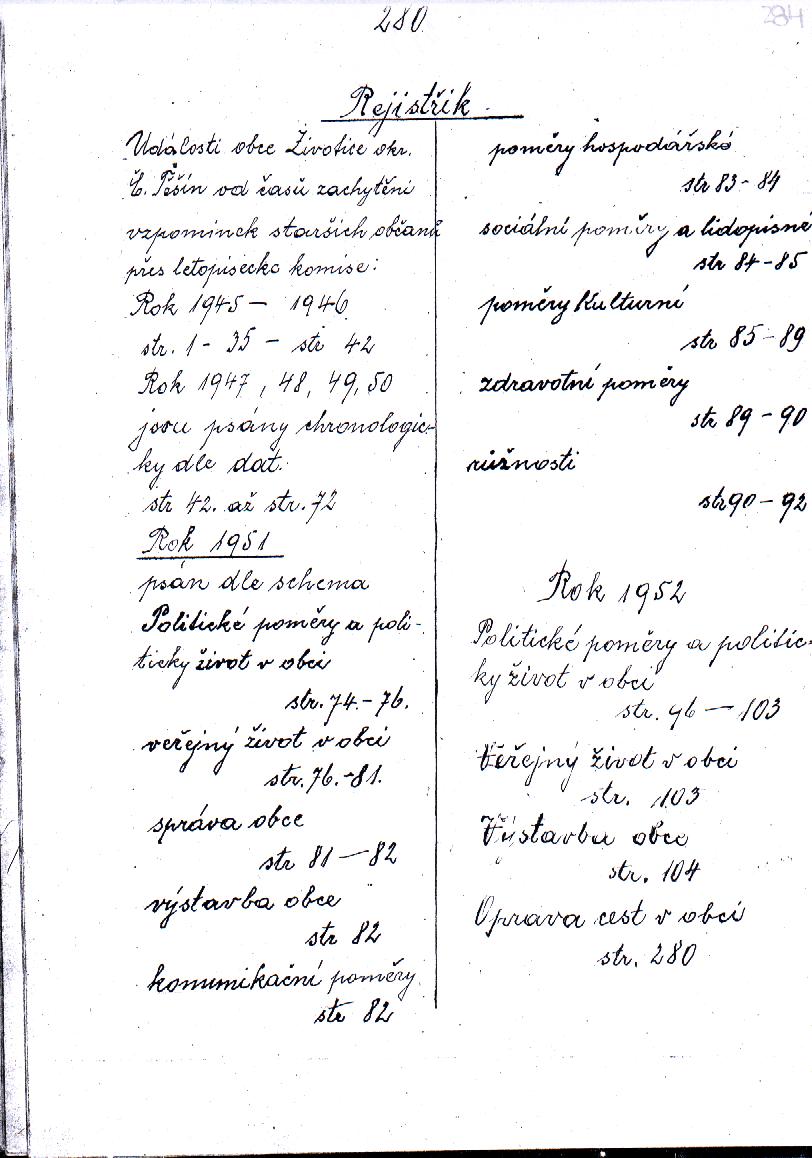 280
284
Rejistřik
Události obce Životice okr.
Č. Těšín od časů zachytění
vzpominek starších občanů
přes letopisecko komise:
Rok 1945 - 1946
str. 1 - 35 - str 42
Rok 1947, 48, 49, 50
jsou psány chronologic-
ky dle dat.
str 42. až str. 72
Rok 1951
psán dle schema
Politické poměry a poli-
ticky život v obci
str. 74.-76.
veřejný život v obci
str. 76.-81.
správa obce
str 81 - 82
výstavba obce
str 82
komunikační poměry
str 82
poměry hospodářské
str 83 - 84
sociální poměry a lidopisné
str 84-85
poměry kulturní
str 85-89
zdravotní poměry
str 89 - 90
různosti
str 90 - 92
Rok 1952
Politické poměry a politic-
ky život v obci
str. 96 - 103
Veřejný život v obci
str. 103
Výstavba obce
str. 104
Oprava cest v obci
str. 280